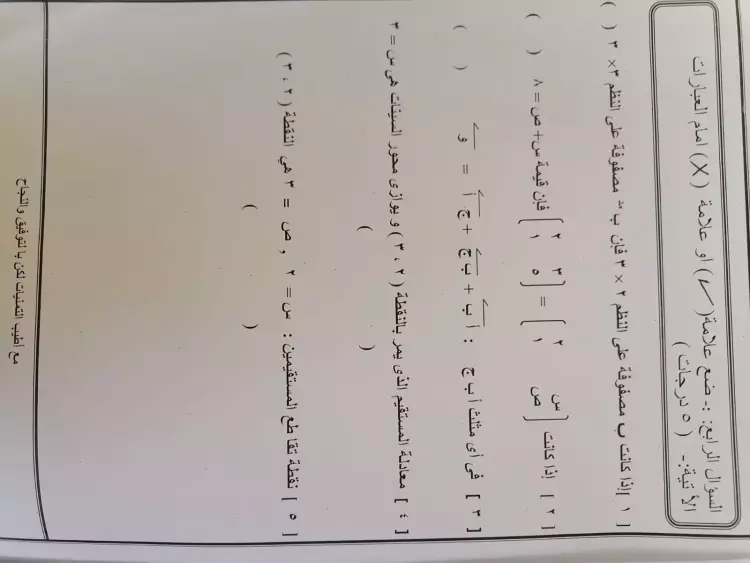 السؤال الرابع: :- ضع علامة(✓) او علامة (X) امام العبارات
الأتية:- ( ٥ درجات )
[ ١ ]إذا كانت ب مصفوفة على النظم ٢ × ٣ فإن ب مد مصفوفة على النظم ٣× ٢ ( )
[ ٢ ] إذا كانت ( س ٢ ) = ( ٣ ٢ ) فإن قيمة س+ ص= ٨ ( )
ص ١ ٥ ١
[ ٣ ] فى أى مثلث أ ب ج : أ ب + ب ج + ج أ = و ( )
[ ٤ ] معادلة المستقيم الذى يمر بالنقطة ( ٢ ، ٣ ) و يوازى محور السينات هى س = ٣
( )
[ ٥ ] نقطة تقاطع المستقيمين : س = ٢ , ص = ٣ هي النقطة ( ٢ ، ٣ )
( )
مع أطيب التمنيات لكن بالتوفيق والنجاح